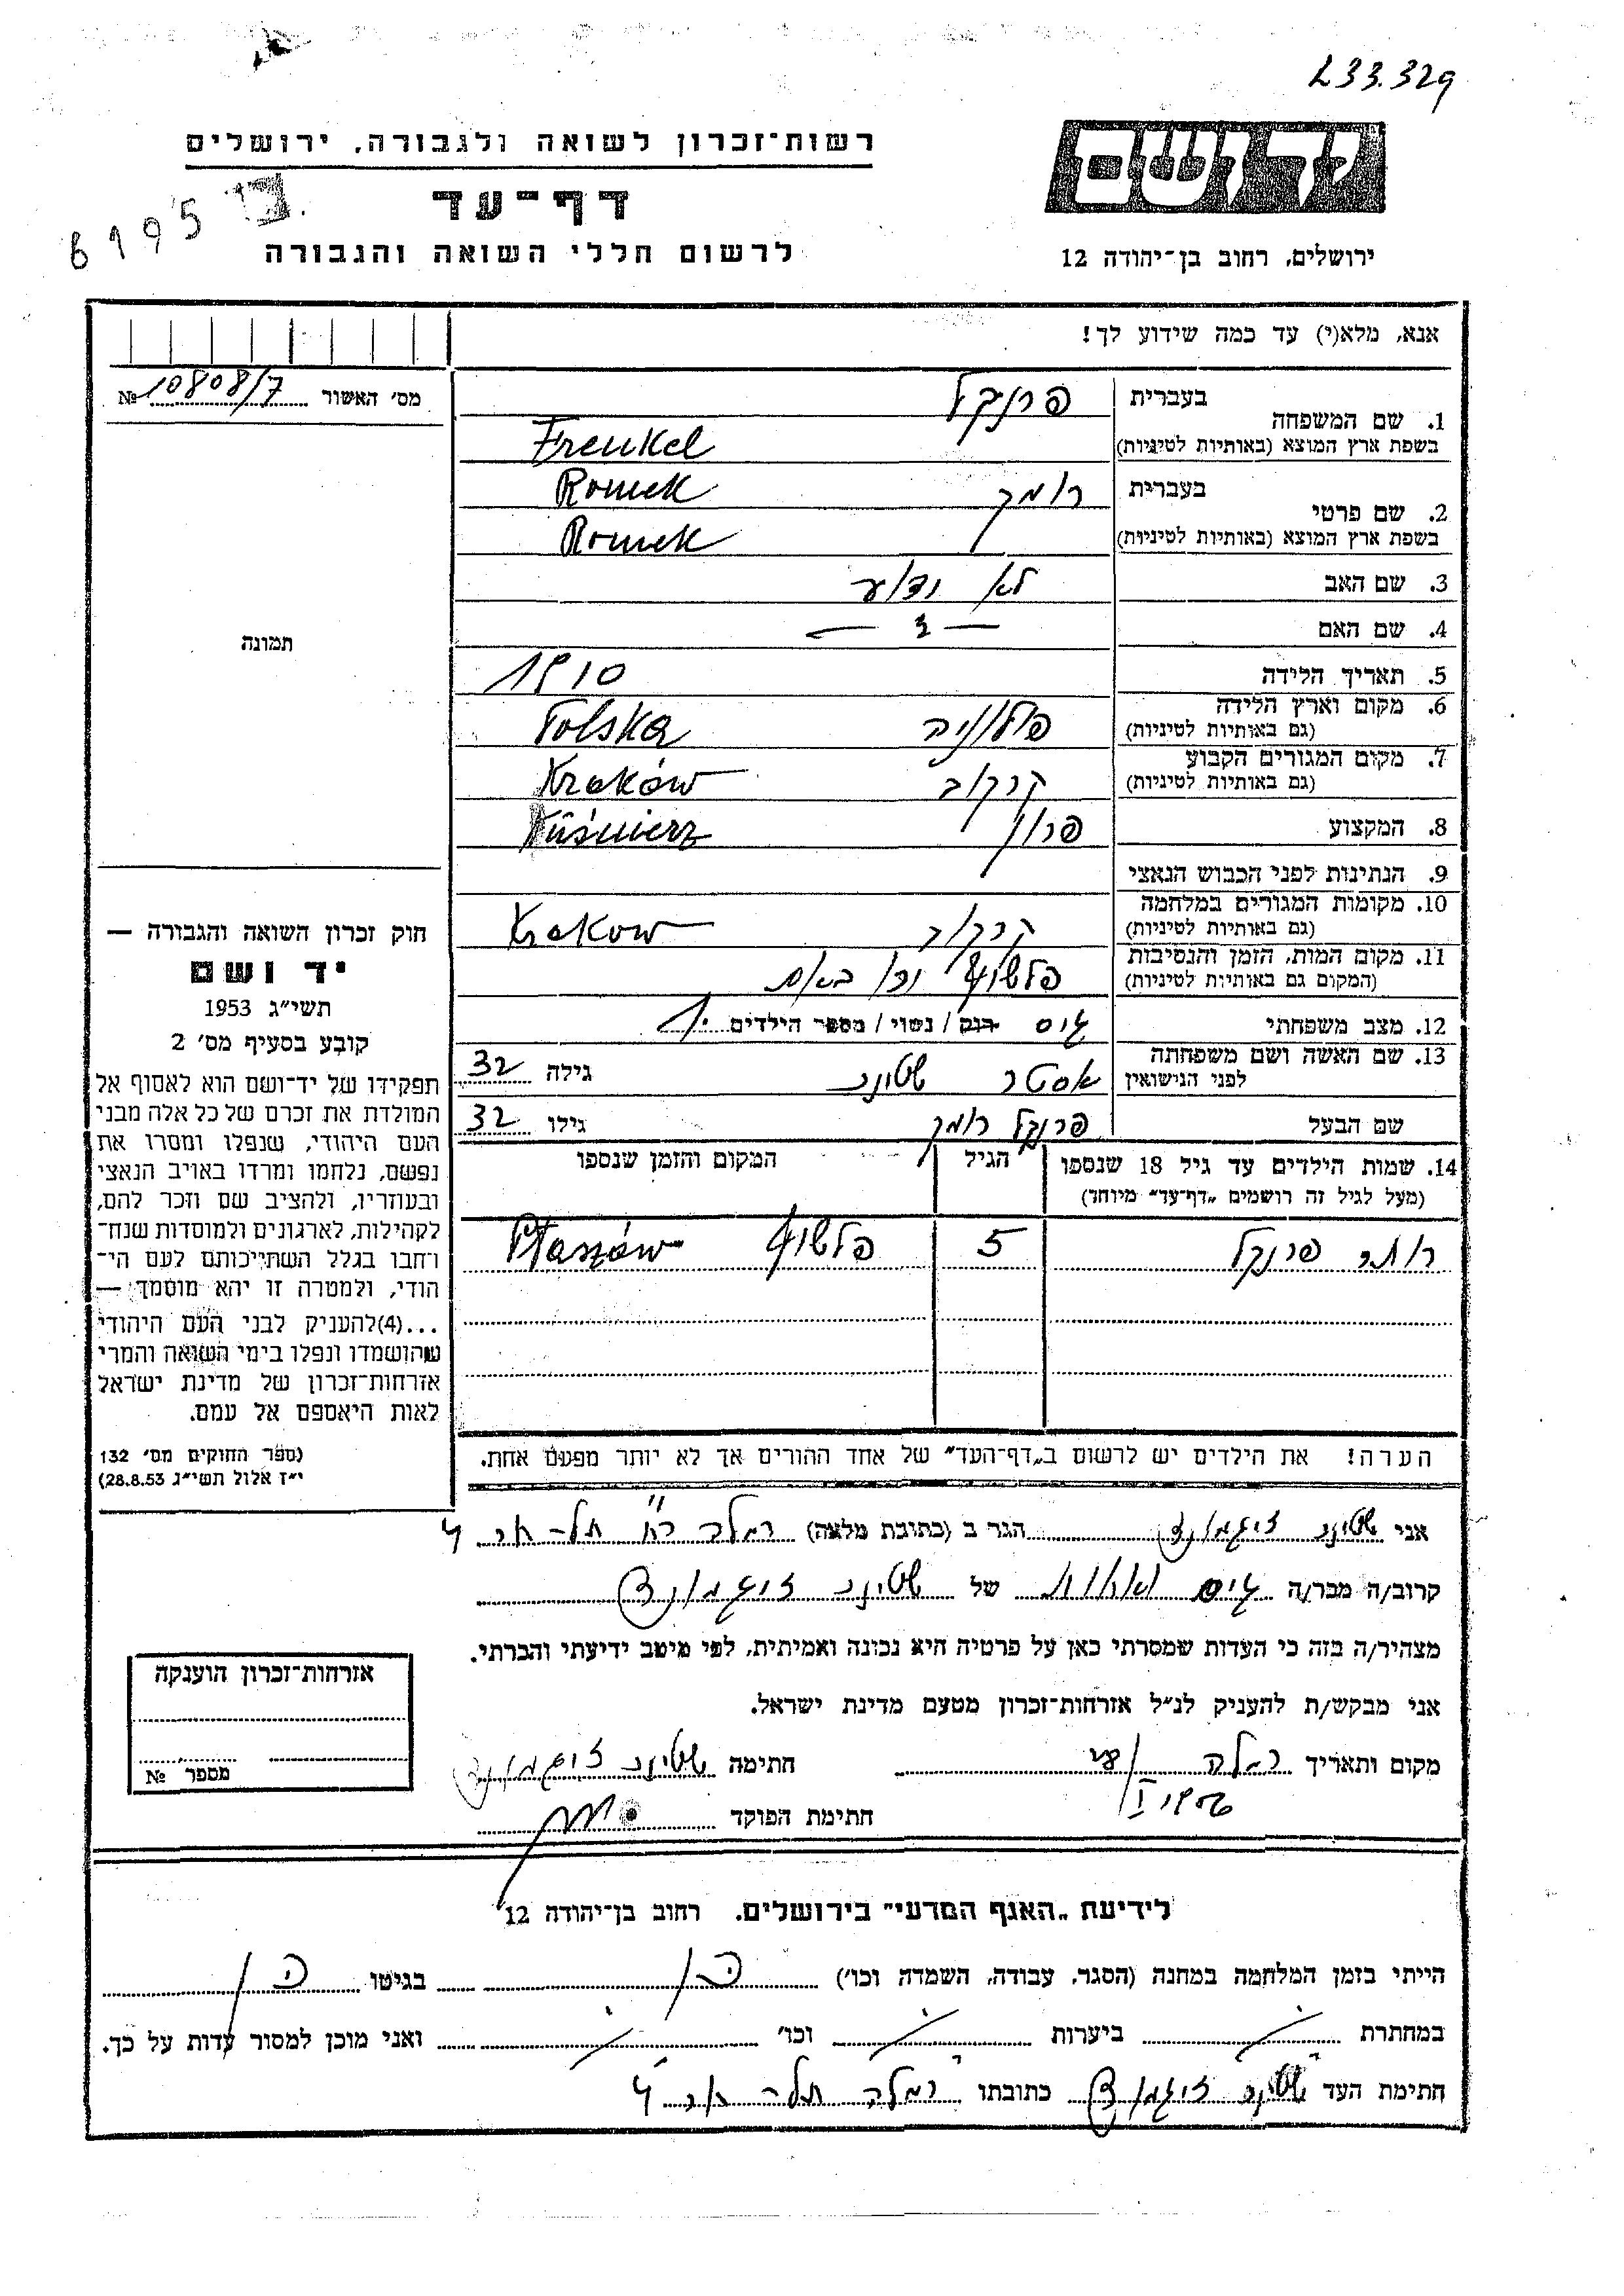 L33.329
רשות־זכרון לשואה ולגבורה, ירושלים
יד ושם
דף־עד
6195
לרשום חללי השואה והגבורה
ירושלים, רחוב בן־יהודה 12
אנא, מלא(י) עד כמה שידוע לך!
מס׳ האשור 10808/7 №
תמונה
1. שם המשפחה
בעברית פרנקל
בשפת ארץ המוצא (באותיות לטיניות) Frenkel
2. שם פרטי
בעברית רומק Romek
בשפת ארץ המוצא (באותיות לטיניות) Romek
3. שם האב לא יודע
4. שם האם
5. תאריך הלידה 1910
6. מקום וארץ הלידה
(גם באותיות לטיניות) פולוניה Polska
7. מקום המגורים הקבוע
(גם באותיות לטיניות) קרקוב Kraków
8. המקצוע פרון Kuśnierz
9. הנתינות לפני הכבוש הנאצי
10. מקומות המגורים במלחמה
(גם באותיות לטיניות) קרקוב Krakow
11. מקום המות, הזמן והנסיבות
(המקום גם באותיות לטיניות) פלשוף
12. מצב משפחתי גיס רווק / נשוי / מספר הילדים 1
13. שם האשה ושם משפחתה
לפני הנישואין אסטר שטינר גילה 32
שם הבעל פרנקל רומק גילו 32
14. שמות הילדים עד גיל 18 שנספו הגיל המקום והזמן שנספו
(מעל לגיל זה רושמים „דף־עד״ מיוחד)
רותר פרנקל 5 פלשוף Płaszów
הערה! את הילדים יש לרשום ב„דף־העד״ של אחד ההורים אך לא יותר מפעם אחת.
חוק זכרון השואה והגבורה —
יד ושם
תשי״ג 1953
קובע בסעיף מס׳ 2
תפקידו של יד־ושם הוא לאסוף אל
המולדת את זכרם של כל אלה מבני
העם היהודי, שנפלו ומסרו את
נפשם, נלחמו ומרדו באויב הנאצי
ובעוזריו, ולהציב שם וזכר להם,
לקהילות, לארגונים ולמוסדות שנח־
רחבו בגלל השתייכותם לעם הי־
הודי, ולמטרה זו יהא מוסמך —
...(4)להעניק לבני העם היהודי
שהושמדו ונפלו בימי השואה והמרי
אזרחות־זכרון של מדינת ישראל
לאות היאספם אל עמם.
(ספר החוקים מס׳ 132
י״ז אלול תשי״ג 28.8.53)
אני שטינר זיגמונד הגר ב (כתובת מלאה) רמלה רח׳ תל־
קרוב/ה מכר/ה גיס ואחות של שטינר זיגמונד
מצהיר/ה בזה כי העדות שמסרתי כאן על פרטיה היא נכונה ואמיתית, לפי מיטב ידיעתי והכרתי.
אני מבקש/ת להעניק לנ״ל אזרחות־זכרון מטעם מדינת ישראל.
מקום ותאריך רמלה חתימה שטינר זיגמונד
חתימת הפוקד
אזרחות־זכרון הוענקה
מספר №
לידיעת „האגף המדעי״ בירושלים, רחוב בן־יהודה 12
הייתי בזמן המלחמה במחנה (הסגר, עבודה, השמדה וכו׳) כן בגיטו כן
במחתרת ביערות וכו׳ ואני מוכן למסור עדות על כך.
חתימת העד שטינר זיגמונד כתובתו רמלה תל־